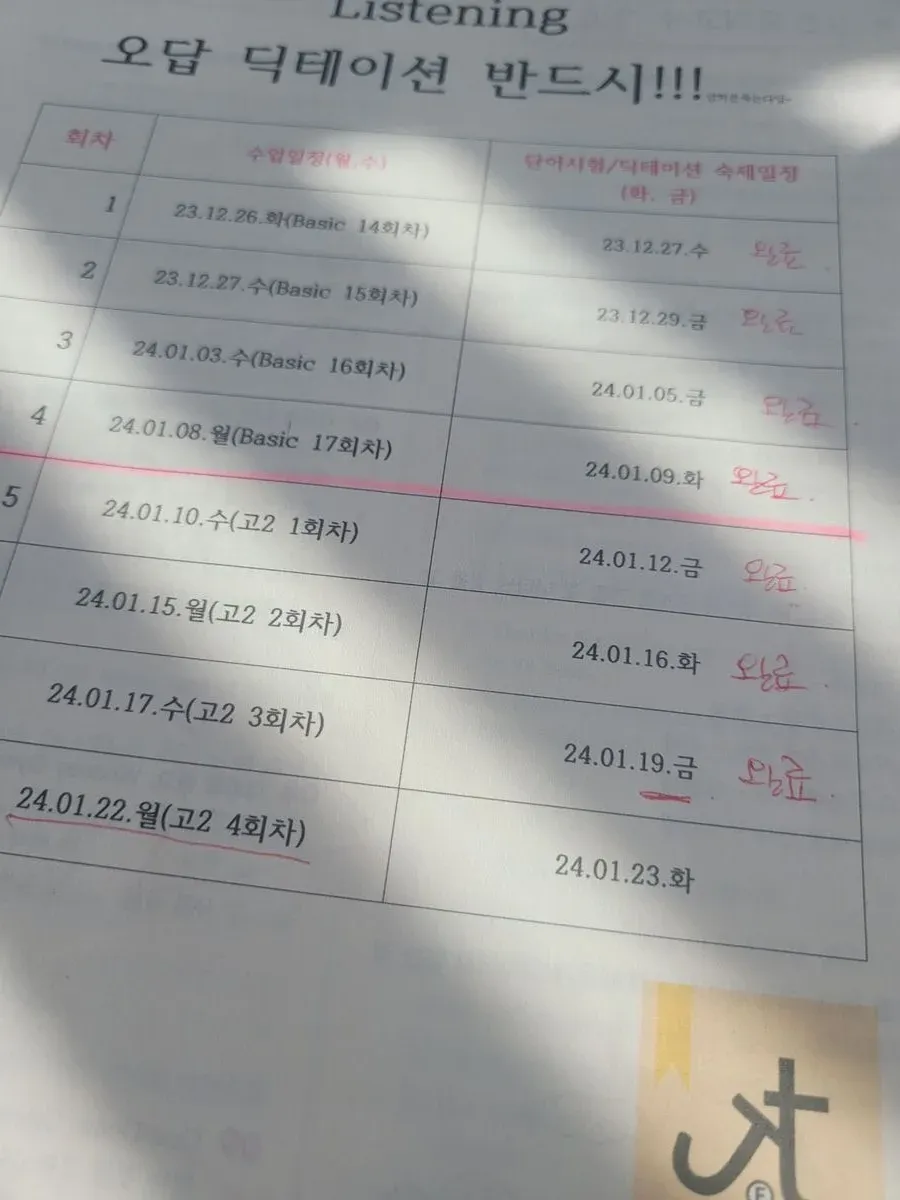 Listening
오답 딕테이션 반드시!!!
회차 수업일정(월,수) 단어시험/딕테이션 숙제일정
(화, 금)
1 23.12.26.화(Basic 14회차) 23.12.27.수 완료
2 23.12.27.수(Basic 15회차) 23.12.29.금 완료
3 24.01.03.수(Basic 16회차) 24.01.05.금 완료
4 24.01.08.월(Basic 17회차) 24.01.09.화 완료
5 24.01.10.수(고2 1회차) 24.01.12.금 완료
24.01.15.월(고2 2회차) 24.01.16.화 완료
24.01.17.수(고2 3회차) 24.01.19.금 완료
24.01.22.월(고2 4회차) 24.01.23.화